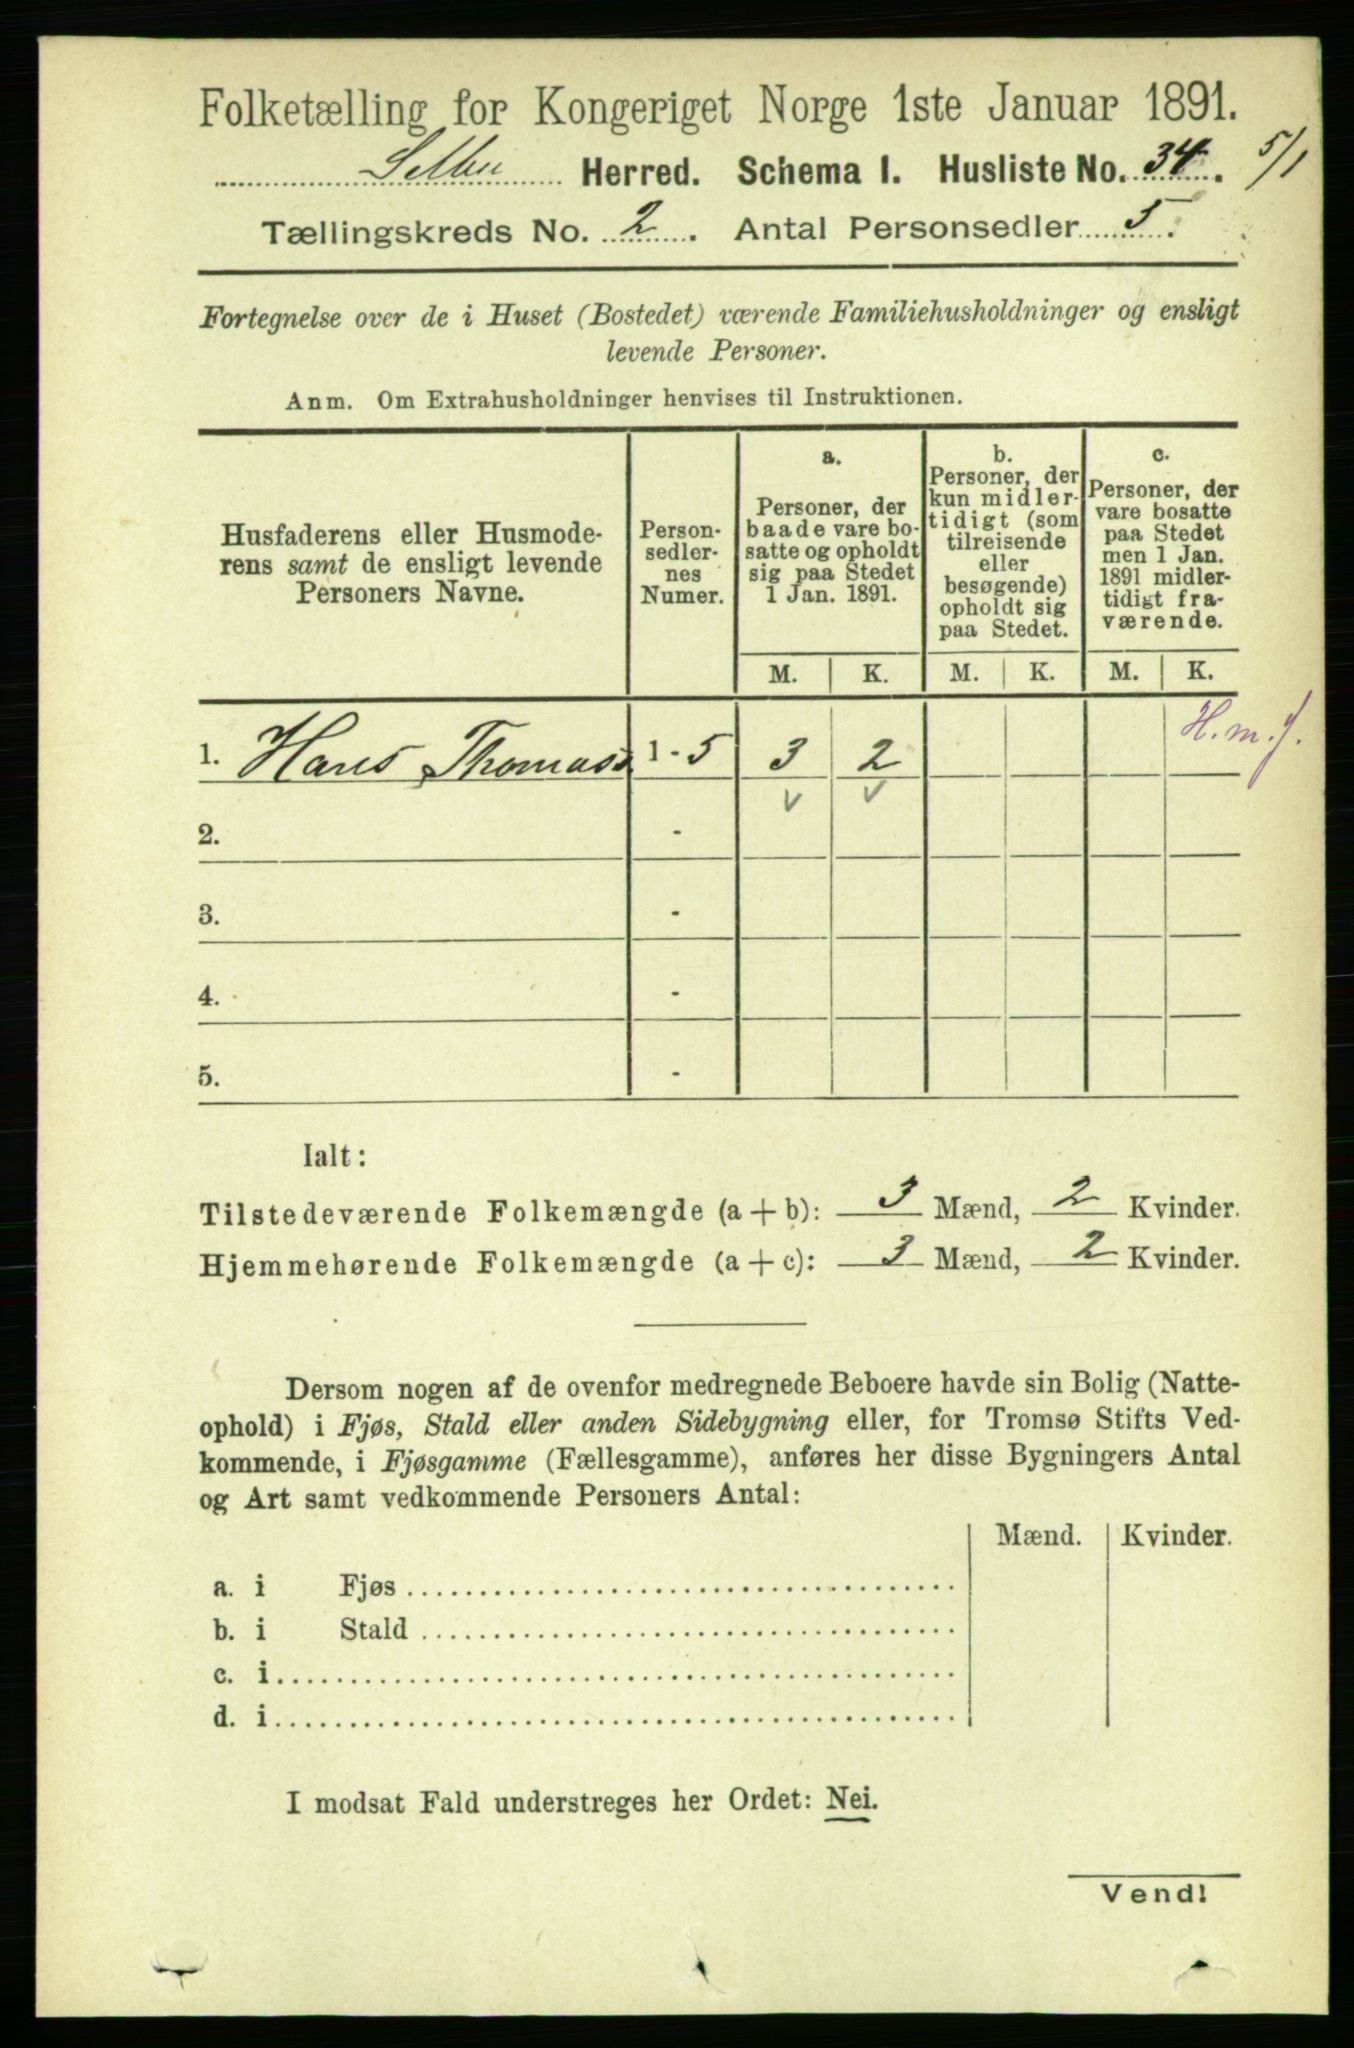 Folketælling for Kongeriget Norge 1ste Januar 1891.
Selbu Herred. Schema I. Husliste No. 34. 5/1
Tællingskreds No. 2. Antal Personsedler 5.
Fortegnelse over de i Huset (Bostedet) værende Familiehusholdninger og ensligt
levende Personer.
Anm. Om Extrahusholdninger henvises til Instruktionen.
Husfaderens eller Husmode-
rens samt de ensligt levende
Personers Navne.
Person-
sedler-
nes
Numer.
a.
Personer, der
baade vare bo-
satte og opholdt
sig paa Stedet
1 Jan. 1891.
b.
Personer, der
kun midler-
tidigt (som
tilreisende
eller
besøgende)
opholdt sig
paa Stedet.
c.
Personer, der
vare bosatte
paa Stedet
men 1 Jan.
1891 midler-
tidigt fra-
værende.
M. K. M. K. M. K.
1. Hans Thomass 1 - 5 3 2 H.m.f.
2. -
3. -
4. -
5. -
Ialt:
Tilstedeværende Folkemængde (a + b): 3 Mænd, 2 Kvinder.
Hjemmehørende Folkemængde (a + c): 3 Mænd, 2 Kvinder.
Dersom nogen af de ovenfor medregnede Beboere havde sin Bolig (Natte-
ophold) i Fjøs, Stald eller anden Sidebygning eller, for Tromsø Stifts Ved-
kommende, i Fjøsgamme (Fællesgamme), anføres her disse Bygningers Antal
og Art samt vedkommende Personers Antal:
Mænd. Kvinder.
a. i Fjøs
b. i Stald
c. i
d. i
I modsat Fald understreges her Ordet: Nei.
Vend!